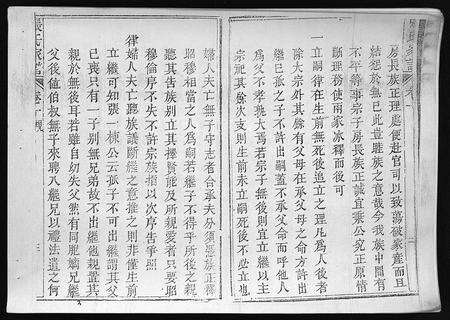 房長族正理處便赴官可以致蕩破家產而且
結怨於無已此豈睦族之意哉今我族中間有
不平詞事宗子房長族正誠宜秉公究正原情
辦理務使兩家冰釋而後可
一立嗣律在生前無死後追立之理凡為人後者
除大宗外其餘有父母在承父母之命方許出
繼已孤之子不許出嗣蓋不承父命而呼他人
為父不孝莫大焉若宗子無後則宜立繼以主
宗祀其餘次支則生前未立嗣死後不必立也
婦人夫亡無子守志者合承夫分須憑族正擇
昭穆相當之人為嗣若繼子不得乎所後之親
聽其告族別立其擇賢能及所親愛者只要昭
穆倫序不失不許宗族指以次序告爭照
律婦人夫亡聽族議斷繼之意推之則非僅生前
立繼可知張一棟公云孤子不可出繼謂其父
已喪只有一子別無兄弟故不出繼他親置其
親於無後耳若雖自幼失父然有同胞嫡兄繼
父後値伯叔無子來聘入繼兄以禮法遣之何
張氏家譜 卷一 規 三